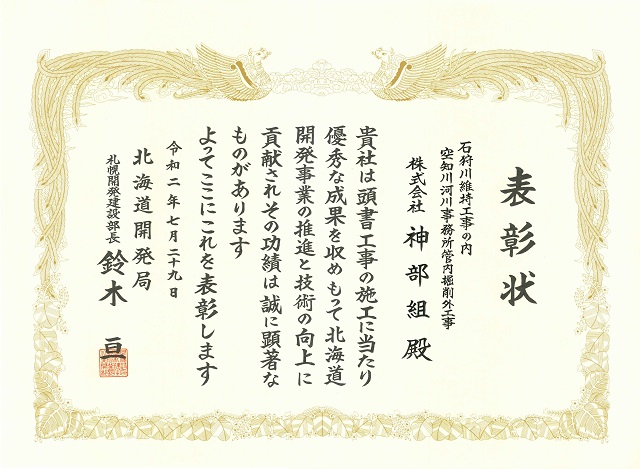 表彰状
石狩川維持工事の内
空知川河川事務所管内掘削外工事
株式会社 神部組 殿
貴社は頭書工事の施工に当たり
優秀な成果を収めもって北海道
開発事業の推進と技術の向上に
貢献されその功績は誠に顕著な
ものがあります
よってここにこれを表彰します
令和二年七月二十九日
北海道開発局
札幌開発建設部長 鈴木 亘